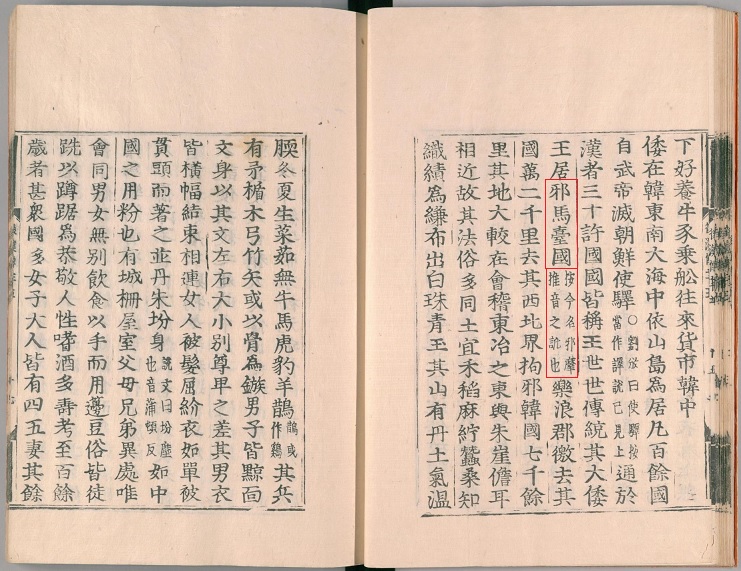 下好養牛豕乘舩往來貨市韓中
倭在韓東南大海中依山島為居凡百餘國
自武帝滅朝鮮使驛〇劉攽曰使驛按當作譯說已見上通於
漢者三十許國國皆稱王世世傳統其大倭
王居邪馬臺國按今名邪摩推音之訛也樂浪郡徼去其
國萬二千里去其西北界拘邪韓國七千餘
里其地大較在會稽東冶之東與朱崖儋耳
相近故其法俗多同土宜禾稻麻紵蠶桑知
織績為縑布出白珠青玉其山有丹土氣溫
腝冬夏生菜茹無牛馬虎豹羊鵲鵲或作鷄其兵
有矛楯木弓竹矢或以骨為鏃男子皆黥面
文身以其文左右大小別尊卑之差其男衣
皆橫幅結束相連女人被髮屈紒衣如單被
貫頭而著之並丹朱坋身說文曰坋塵也音蒲頓反如中
國之用粉也有城柵屋室父母兄弟異處唯
會同男女無別飲食以手而用籩豆俗皆徒
跣以蹲踞為恭敬人性嗜酒多壽考至百餘
歲者甚衆國多女子大人皆有四五妻其餘